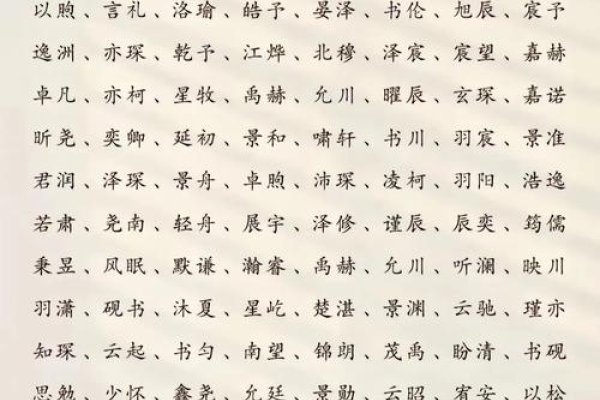 以煦、言礼、洛瑜、皓予、晏泽、书伦、旭辰、宸予
逸洲、亦琛、乾予、江烨、北穆、泽宸、宸望、嘉赫
卓凡、亦柯、星牧、禹赫、允川、曜辰、玄琛、嘉诺
昕尧、奕卿、延初、景和、啸轩、书川、羽宸、景准
君润、泽琛、景舟、卓煦、沛琛、凌柯、羽阳、浩逸
若肃、尧南、轻舟、展宇、泽修、谨辰、辰奕、筠儒
秉昱、风眠、默谦、瀚睿、禹赫、允川、听澜、映川
羽潇、砚书、沐夏、星屹、楚湛、景渊、云驰、瑾亦
知琛、云起、书匀、南望、锦朗、茂禹、盼清、书砚
思勉、少怀、鑫尧、允廷、景勋、云昭、宥安、以松